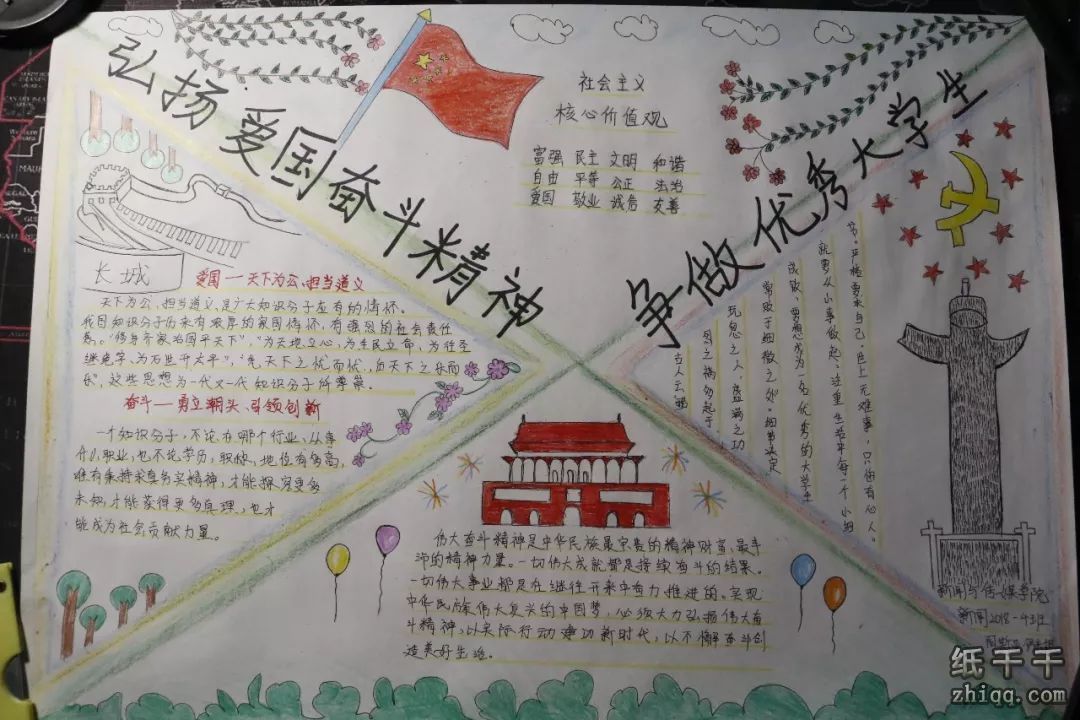 弘扬爱国奋斗精神
争做优秀大学生
社会主义
核心价值观
富强 民主 文明 和谐
自由 平等 公正 法治
爱国 敬业 诚信 友善
长城
爱国一天下为公、担当道义
天下为公、担当道义,是广大知识分子应有的情怀。
我国知识分子历来有浓厚的家国情怀,有强烈的社会责任
感。"修身齐家治国平天下","为天地立心,为生民立命,为往圣
继绝学、为万世开太平","先天下之忧而忧、后天下之乐而
乐",这些思想为一代又一代知识分子所尊崇。
奋斗一勇立潮头、引领创新
一个知识分子,不论在哪个行业、从事
什么职业,也不论学历,职称、地位有多高,
唯有秉持求真务实精神,才能探究更多
未知,才能获得更多真理,也才
能成为社会贡献力量。
伟大奋斗精神是中华民族最宝贵的精神财富、最丰
沛的精神力量。一切伟大成就都是接续奋斗的结果。
一切伟大事业都是在继往开来中奋力推进的。实现
中华民族伟大复兴的中国梦,必须大力弘扬伟大奋
斗精神,以实际行动建功新时代,以不懈奋斗创
造美好生活。
古人云:
图之祸勿起于
玩怠之人,盛满之功
常败于细微之处。细节决定
成败,要想成为一名优秀的大学生
就要从小事做起,注重生活中每一个小细
节,严格要求自己。世上无难事,只怕有心人。
新闻与传媒学院
新闻2018-4班
纸千千
zhiqq.com